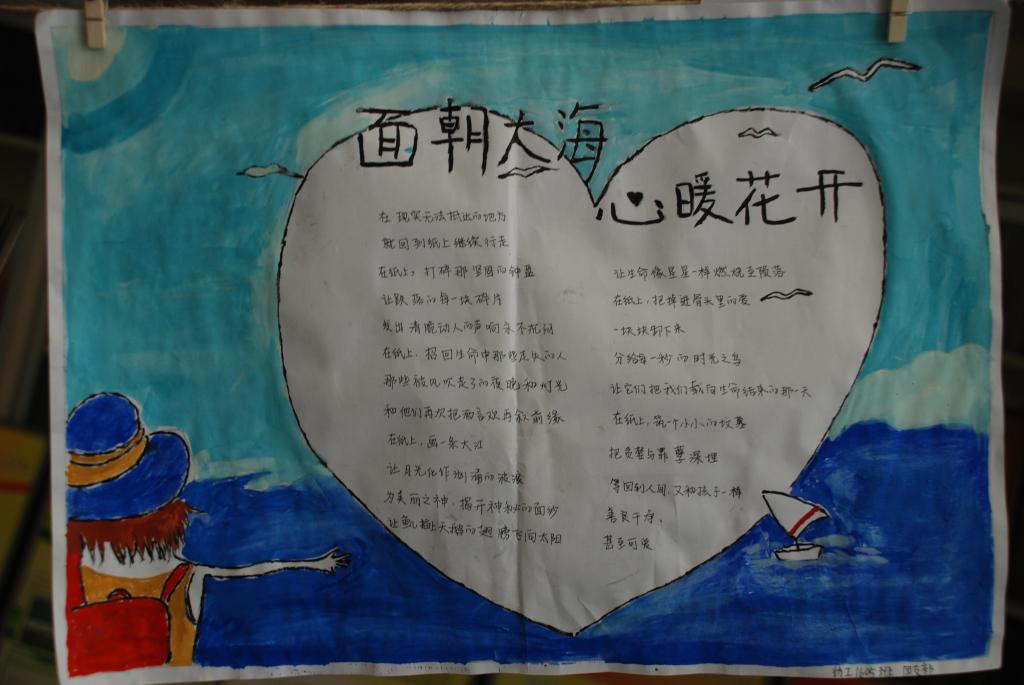 面朝大海
心暖花开
在现实无法抵达的地方
就回到纸上继续行走
在纸上，打碎那坚固的钟盖
让跌落的每一块碎片
发出清脆动人的声响永不
在纸上，招回生命中那些走失的人
那些被风吹走了的夜晚和灯光
和他们再次把酒言欢再叙前缘
在纸上，画一条大江
让月光化作汹涌的波涛
为美丽之神，揭开神秘的面纱
让插上天鹅的翅膀飞向太阳
让生命像星星一样燃烧至陨落
在纸上，把掉进骨头里的爱
一块块卸下来
分给每一秒的时光之鸟
让它们把我们载向生命结束的那一天
在纸上，筑一个小小的坟墓
把负罪与罪孽深埋
等回到人间，又和孩子一样
善良干净，
甚至可爱